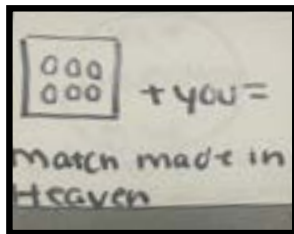 + you =
Match made in
Heaven